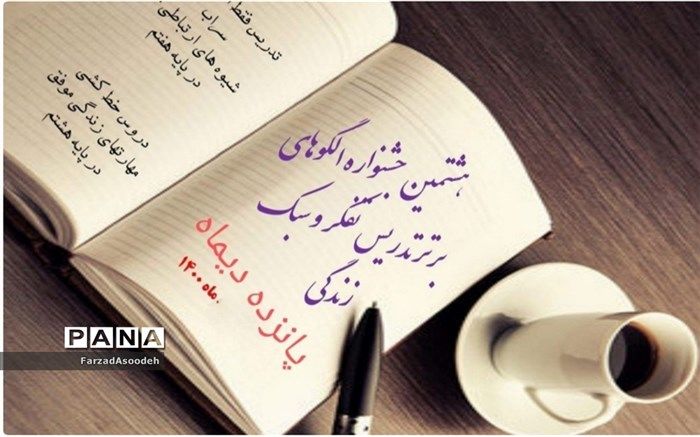 تدریس فقط
سراب
شیوه های ارتباطی
در پایه هفتم
دروس خط کشی
مهارتهای زندگی موفق
در پایه هشتم
هشتمین جشنواره الگوهای
برتر تدریس تفکر و سبک
زندگی
پانزده دیماه
ماه ۱۴۰۰
PANA
FarzadAsoodeh